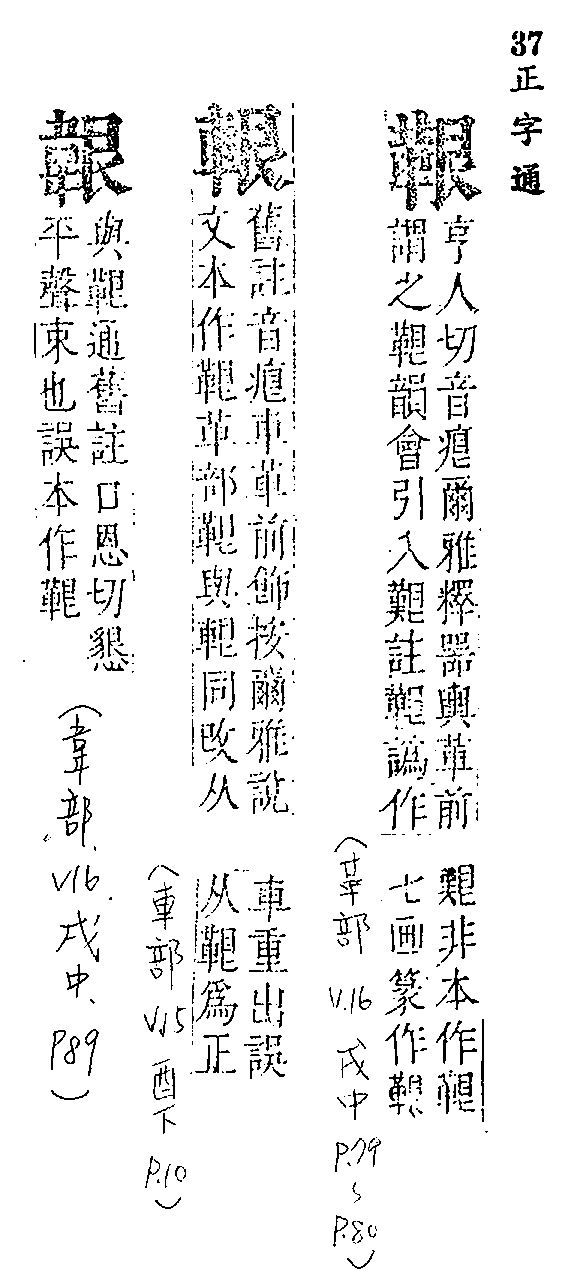 37 正字通
鞎
亨人切音痕爾雅釋器輿革前
謂之鞎韻會引入艱註鞎譌作
艱非本作
七画篆作
(革部 V.16 戌中 P.79~P.80)
舊註音痕車革前飾按爾雅說
文本作鞎革部鞎與 同改从
車重出誤
从鞎爲正
(車部 V.15 酉下 P.10)
與鞎通舊註口恩切懇
平聲束也誤本作鞎
(韋部 V.16 戌中 P.89)